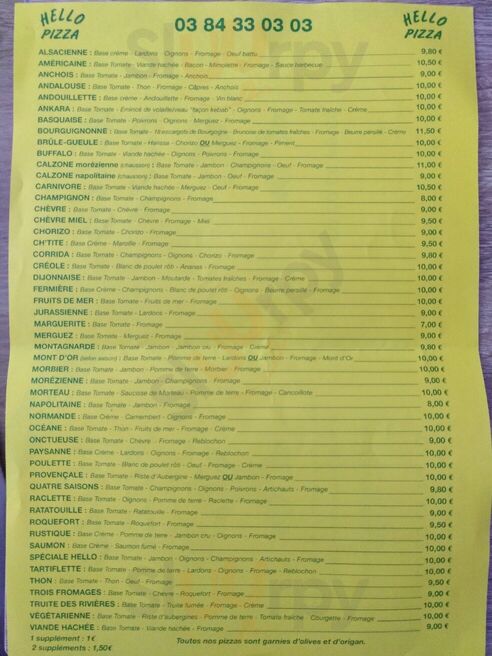 HELLO PIZZA
03 84 33 03 03
HELLO PIZZA
ALSACIENNE : Base crème - Lardons - Oignons - Fromage - Oeuf battu 9,80 €
AMÉRICAINE : Base Tomate - Viande hachée - Bacon - Mimolette - Fromage - Sauce barbecue 10,50 €
ANCHOIS : Base Tomate - Jambon - Fromage - Anchois 9,00 €
ANDALOUSE : Base Tomate - Thon - Fromage - Câpres - Anchois 10,00 €
ANDOUILLETTE : Base crème - Andouillette - Fromage - Vin blanc 10,00 €
ANKARA : Base Tomate - Emincé de volaille/veau "façon kebab" - Oignons - Fromage - Tomate fraîche - Crème 10,00 €
BASQUAISE : Base Tomate - Poivrons - Oignons - Merguez - Fromage 10,00 €
BOURGUIGNONNE : Base Tomate - 18 escargots de Bourgogne - Brunoise de tomates fraîches - Fromage - Beurre persillé - Crème 11,50 €
BRÛLE-GUEULE : Base Tomate - Harissa - Chorizo OU Merguez - Fromage - Piment 10,00 €
BUFFALO : Base Tomate - Viande hachée - Oignons - Poivrons - Fromage 10,00 €
CALZONE morézienne (chausson) : Base Tomate - Jambon - Champignons - Oeuf - Fromage 11,00 €
CALZONE napolitaine (chausson) : Base Tomate - Jambon - Oeuf - Fromage 9,00 €
CARNIVORE : Base Tomate - Viande hachée - Merguez - Oeuf - Fromage 10,50 €
CHAMPIGNON : Base Tomate - Champignons - Fromage 8,00 €
CHÈVRE : Base Tomate - Chèvre - Fromage 9,00 €
CHÈVRE MIEL : Base Tomate - Chèvre - Fromage - Miel 9,50 €
CHORIZO : Base Tomate - Chorizo - Fromage 9,00 €
CH'TITE : Base Crème - Maroille - Fromage 9,50 €
CORRIDA : Base Tomate - Champignons - Oignons - Chorizo - Fromage 9,80 €
CRÉOLE : Base Tomate - Blanc de poulet rôti - Ananas - Fromage 10,00 €
DIJONNAISE : Base Tomate - Jambon - Moutarde - Tomates fraîches - Fromage - Crème 10,00 €
FERMIÈRE : Base Crème - Champignons - Blanc de poulet rôti - Oignons - Beurre persillé - Fromage 10,00 €
FRUITS DE MER : Base Tomate - Fruits de mer - Fromage 10,00 €
JURASSIENNE : Base Tomate - Lardons - Fromage 9,00 €
MARGUERITE : Base Tomate - Fromage 7,00 €
MERGUEZ : Base Tomate - Merguez - Fromage 9,00 €
MONTAGNARDE : Base Tomate - Jambon - Jambon cru - Fromage - Crème 9,80 €
MONT D'OR (selon saison) : Base Tomate - Pomme de terre - Lardons OU Jambon - Fromage - Mont d'Or 10,00 €
MORBIER : Base Tomate - Jambon - Pomme de terre - Morbier - Fromage 10,00 €
MORÉZIENNE : Base Tomate - Jambon - Champignons - Fromage 9,00 €
MORTEAU : Base Tomate - Saucisse de Morteau - Pomme de terre - Fromage - Cancoillote 10,00 €
NAPOLITAINE : Base Tomate - Jambon - Fromage 8,00 €
NORMANDE : Base Crème - Camembert - Oignons - Fromage 10,00 €
OCÉANE : Base Tomate - Thon - Fruits de mer - Fromage - Crème 10,00 €
ONCTUEUSE : Base Tomate - Chèvre - Fromage - Reblochon 9,00 €
PAYSANNE : Base Crème - Lardons - Oignons - Fromage - Reblochon 10,00 €
POULETTE : Base Tomate - Blanc de poulet rôti - Oeuf - Fromage - Crème 10,00 €
PROVENÇALE : Base Tomate - Riste d'Aubergine - Merguez OU Jambon - Fromage 10,00 €
QUATRE SAISONS : Base Tomate - Champignons - Oignons - Poivrons - Artichauts - Fromage 9,80 €
RACLETTE : Base Tomate - Oignons - Pomme de terre - Raclette - Fromage 10,00 €
RATATOUILLE : Base Tomate - Ratatouille - Fromage 9,00 €
ROQUEFORT : Base Tomate - Roquefort - Fromage 9,50 €
RUSTIQUE : Base Crème - Pomme de terre - Jambon cru - Oignon - Fromage 10,00 €
SAUMON : Base Crème - Saumon fumé - Fromage 10,00 €
SPÉCIALE HELLO : Base Tomate - Jambon - Oignons - Champignons - Artichauts - Fromage 10,00 €
TARTIFLETTE : Base Tomate - Pomme de terre - Lardons - Oignons - Fromage - Reblochon 10,00 €
THON : Base Tomate - Thon - Oeuf - Fromage 9,50 €
TROIS FROMAGES : Base Tomate - Chèvre - Roquefort - Fromage 9,00 €
TRUITE DES RIVIÈRES : Base Tomate - Truite fumée - Fromage - Crème 10,00 €
VÉGÉTARIENNE : Base Tomate - Riste d'aubergines - Pomme de terre - Tomate fraîche - Courgette - Fromage 10,00 €
VIANDE HACHÉE : Base Tomate - Viande hachée - Fromage 9,00 €
1 supplément : 1€
2 suppléments : 1,50€
Toutes nos pizzas sont garnies d'olives et d'origan.